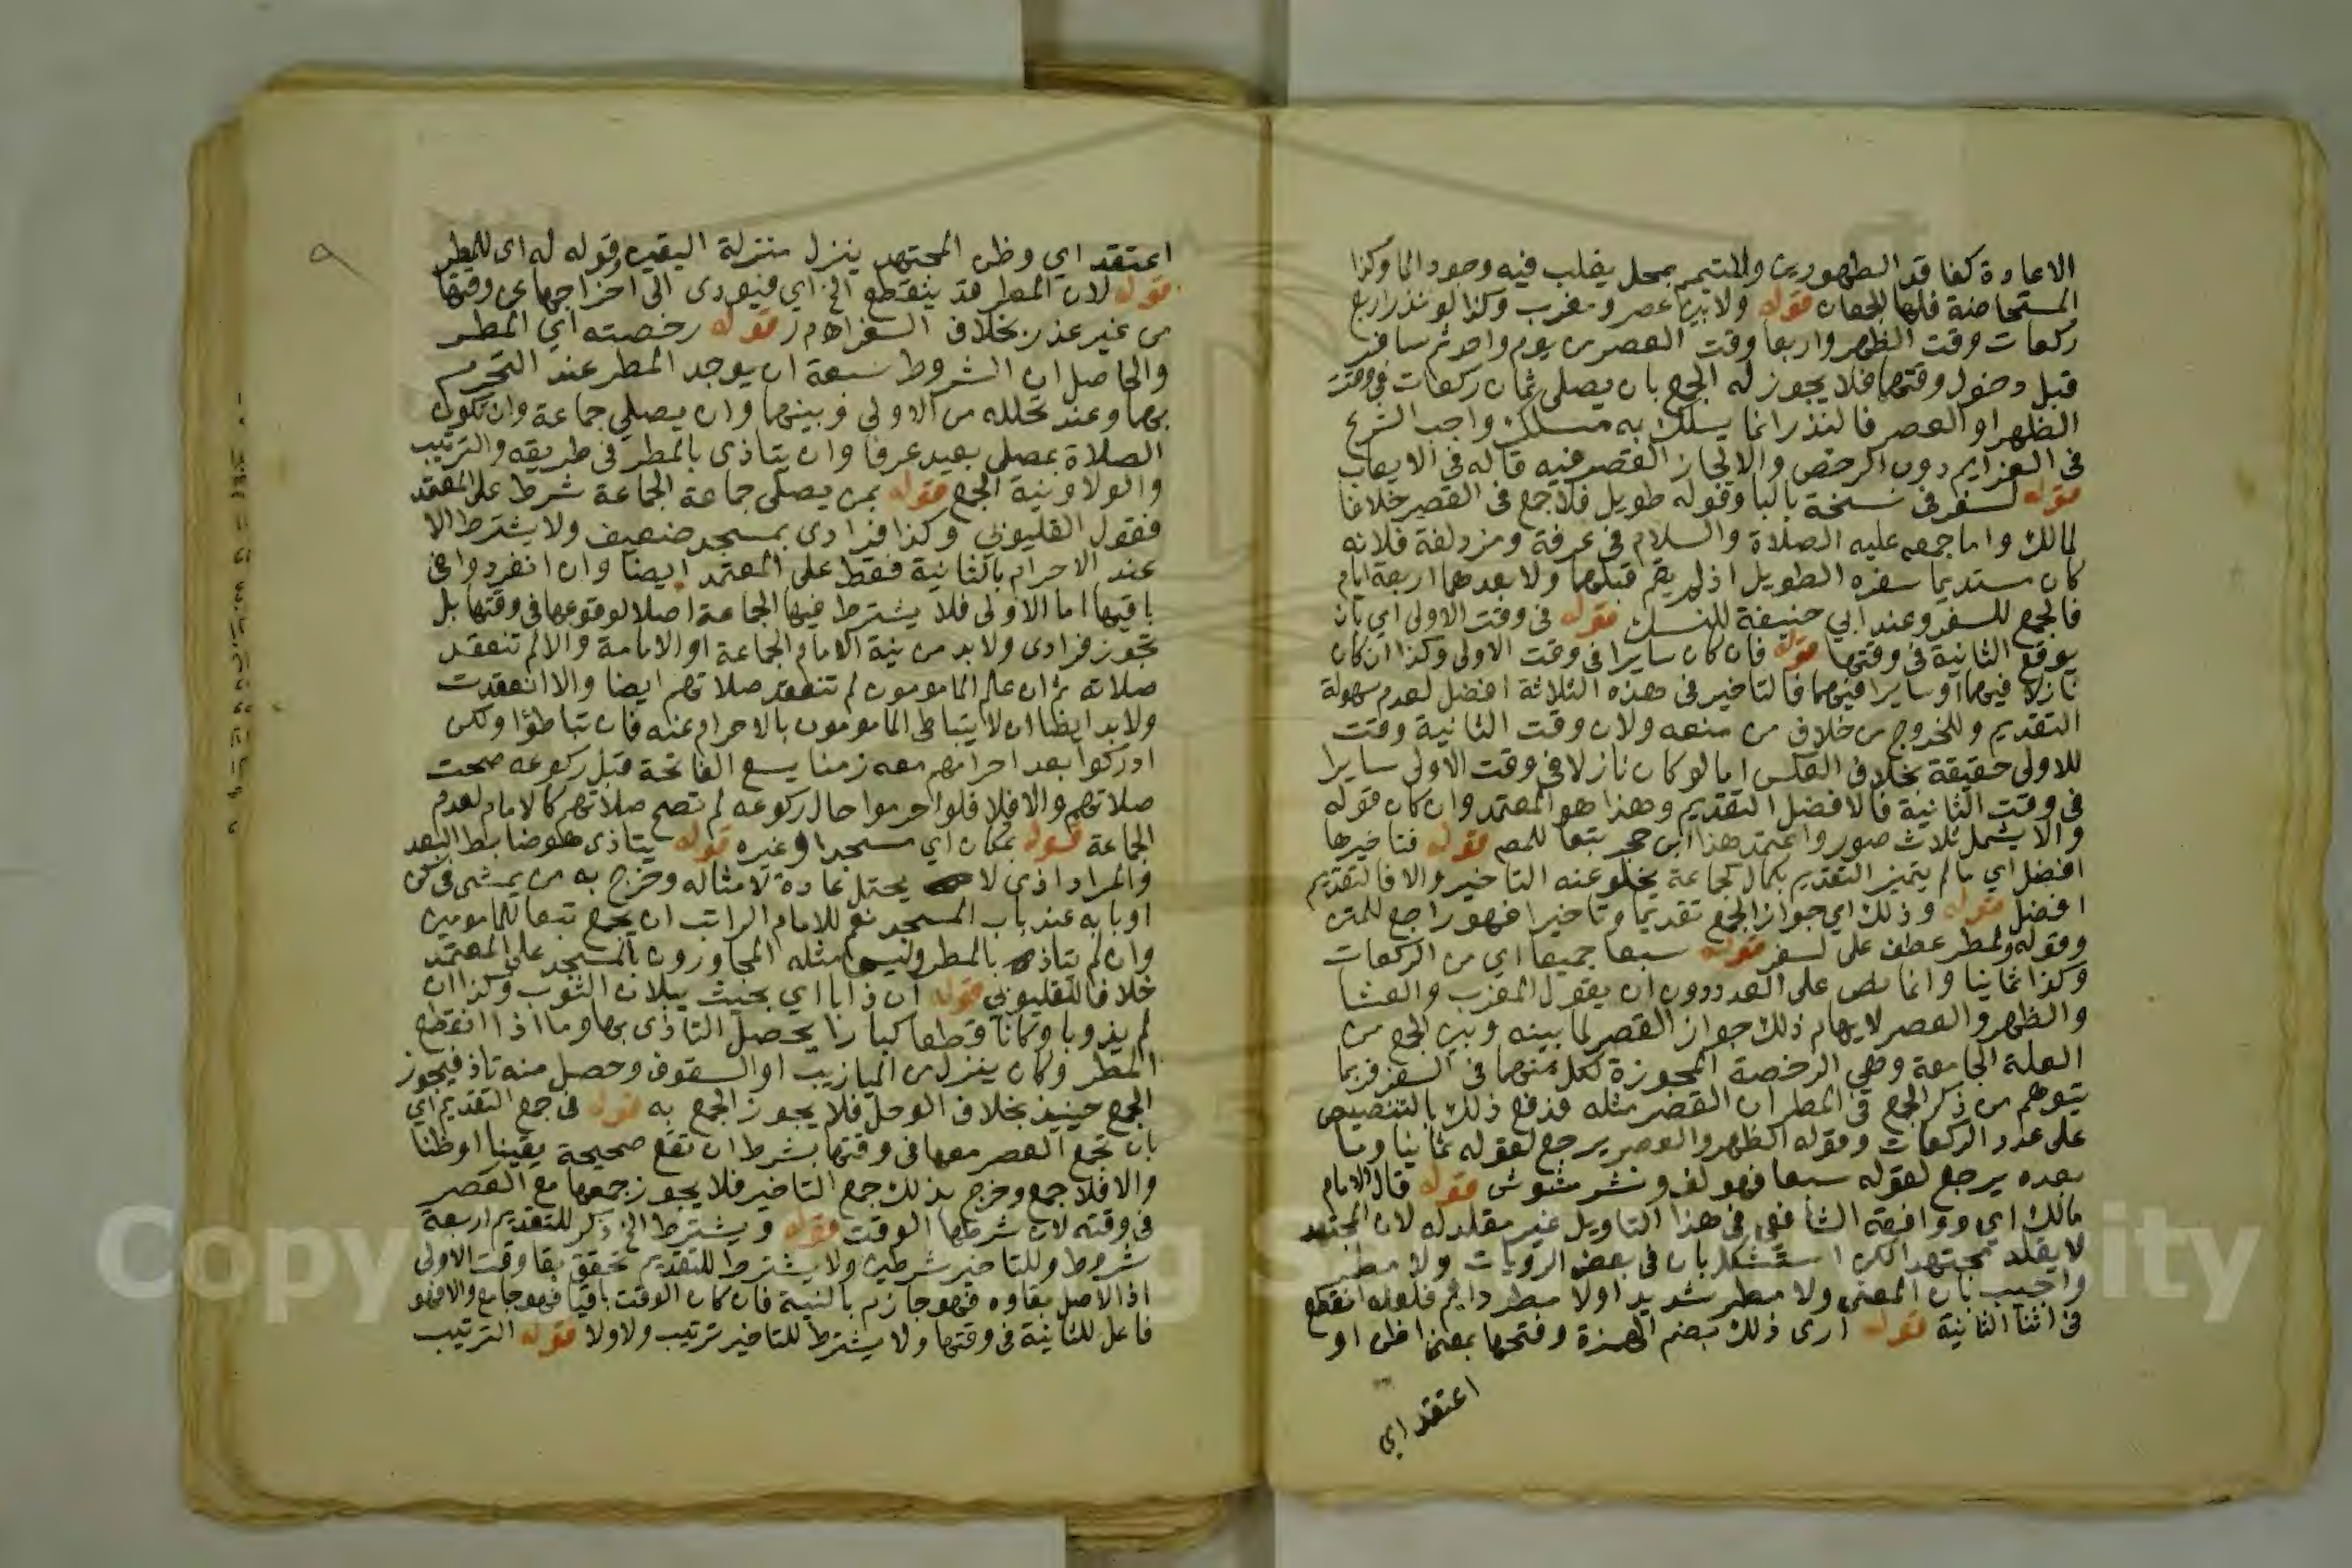 الاعادة كفاقد الطهورين والمتيمم بمحل يغلب فيه وجود الما وكذا
المستحاضة فلهما الجمعان قوله ولا بين عصر ومغرب وكذا لو نذر اربع
ركعات وقت الظهر واربعا وقت العصر من يوم واحد ثم سافر
قبل دخول وقتهما فلا يجوز له الجمع بان يصلى ثمان ركعات في وقت
الظهر او العصر فالنذر انما يسلك به مسلك واجب الشرع
فى العزايم دون الرخص والا لجاز القصر فيه قاله فى الايعاب
قوله لسفر فى نسخة بالبا وقوله طويل فلا جمع فى القصير خلافا
لمالك واما جمعه عليه الصلاة والسلام في عرفة ومزدلفة فلانه
كان مستديما سفره الطويل اذ لم يقم قبلهما ولا بعدهما اربعة ايام
فالجمع للسفر وعند ابي حنيفة للنسك قوله فى وقت الاولى اي بان
يوقع الثانية فى وقتها قوله فان كان سايرا فى وقت الاولى وكذا ان كان
نازلا فيهما او سايرا فيهما فالتاخير فى هذه الثلاثة افضل لعدم سهولة
التقديم وللخروج من خلاف من منعه ولان وقت الثانية وقت
للاولى حقيقة بخلاف العكس اما لو كان نازلا في وقت الاولى سايرا
فى وقت الثانية فالافضل التقديم وهذا هو المعتمد وان كان قوله
والا يشمل ثلاث صور واعتمد هذا ابن حجر تبعا للمص قوله فتاخيرها
افضل اي ما لم يتميز التقديم بكمال كجماعة يخلو عنه التاخير والا فالتقديم
افضل قوله وذلك اي جواز الجمع تقديما وتاخيرا فهو راجع للمتن
وقوله ولمطر عطف على لسفر قوله سبعا جميعا اي من الركعات
وكذا ثمانيا وانما نص على العدد دون ان يقول المغرب والعشا
والظهر والعصر لايهام ذلك جواز القصر لما بينه وبين الجمع من
العلة الجامعة وهي الرخصة المجوزة لكل منهما فى السفر فربما
يتوهم من ذكر الجمع في المطر ان القصر مثله فدفع ذلك بالتنصيص
على عدد الركعات وقوله الظهر والعصر يرجع لقوله ثمانيا وما
بعده يرجع لقوله سبعا فهو لف ونشر مشوش قوله قال الامام
مالك اي ووافقه الشافعي فى هذا التاويل غير مقلد له لان المجتهد
لا يقلد مجتهدا لكن استشكل بان فى بعض الرويات ولا مطر
واجيب بان المعنى ولا مطر شديد اولا مطر دايم فلعله انقطع
فى اثنا الثانية قوله ارى ذلك بضم الهمزة وفتحها بمعنى اظن او
اعتقد اي
اعتقد اي وظن المجتهد ينزل منزلة اليقين وقوله له اى للمطر
قوله لان المطر قد ينقطع الخ اي فيودى الى اخراجها عن وقتها
من غير عذر بخلاف السفر اه م ر قوله رخصته اي المطر
والحاصل ان الشروط سبعة ان يوجد المطر عند التحرم
بهما وعند تحلله من الاولى وبينهما وان يصلي جماعة وان تكون
الصلاة بمصلى بعيد عرفا وان يتاذى بالمطر فى طريقه والترتيب
والولا ونية الجمع قوله بمن يصلى جماعة الجماعة شرط على المعتمد
فقول القليوبي وكذا فرادى بمسجد ضعيف ولا يشترط الا
عند الاحرام بالثانية فقط على المعتمد ايضا وان انفردوا في
باقيها اما الاولى فلا يشترط فيها الجماعة اصلا لوقوعها فى وقتها بل
تجوز فرادى ولا بد من نية الامام الجماعة او الامامة والا لم تنعقد
صلاته ثم ان علم المامومون لم تنعقد صلاتهم ايضا والا انعقدت
ولا بد ايظا ان لا يتباطى المامومون بالاحرام عنه فان تباطؤا ولكن
ادركوا بعد احرامهم معه زمنا يسع الفاتحة قبل ركوعه صحت
صلاتهم والا فلا فلو احرموا حال ركوعه لم تصح صلاتهم كالامام لعدم
الجماعة قوله بمكان اي مسجد او غيره قوله يتاذى هو ضابط البعد
والمراد اذى لا يحتمل عادة لامثاله وخرج به من يمشى في كن
او بابه عند باب المسجد نعم للامام الراتب ان يجمع تبعا للمامومين
وان لم يتاذ بالمطر وليس مثله المجاورون بالمسجد على المعتمد
خلافا للقليوبي قوله ان ذابا اي بحيث يبلان الثوب وكذا ان
لم يذوبا وكانا قطعا كبارا يحصل التاذى بها وما اذا انقطع
المطر وكان ينزل من الميازيب او السقوف وحصل منه تاذ فيجوز
الجمع حينيذ بخلاف الوحل فلا يجوز الجمع به قوله فى جمع التقديم اي
بان تجمع العصر معها فى وقتها بشرط ان تقع صحيحة يقينا او ظنا
والا فلا جمع وخرج بذلك جمع التاخير فلا يجوز جمعها مع العصر
فى وقته لان شرطها الوقت قوله ويشترط الخ ذكر للتقديم اربعة
شروط وللتاخير شرطين ولا يشترط للتقديم تحقق بقا وقت الاولى
اذ الاصل بقاوه فهو جازم بالنية فان كان الوقت باقيا فهو جامع والا فهو
فاعل للثانية فى وقتها ولا يشترط للتاخير ترتيب ولا ولا قوله الترتيب